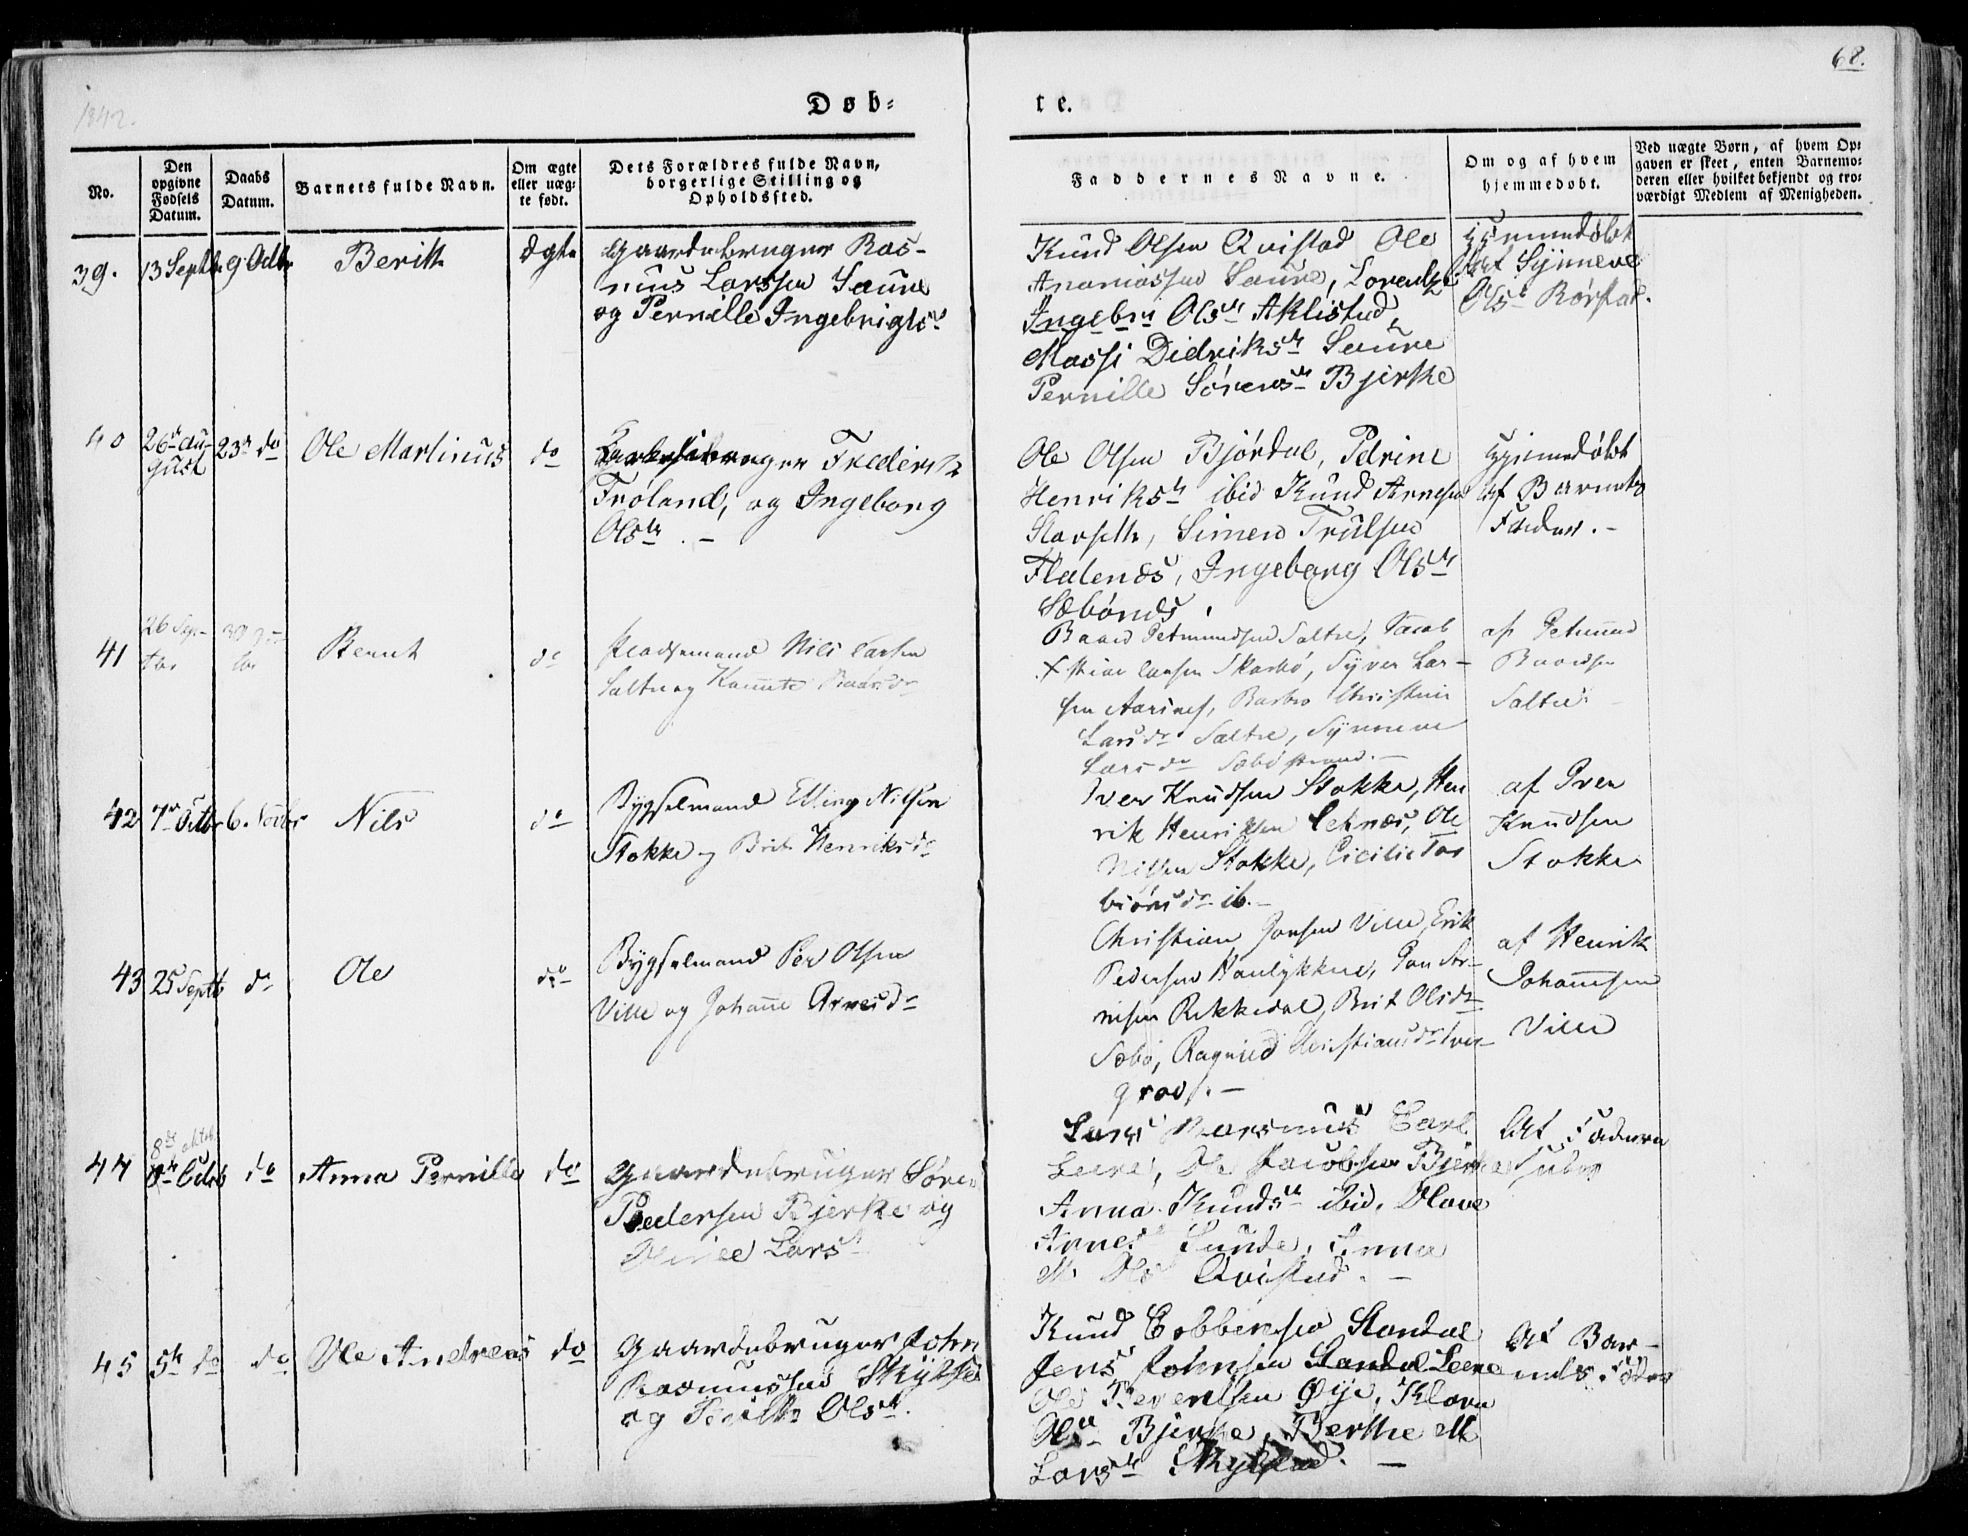 68.
1842.
Døb-
te.
No.
Den opgivne Fødsels Datum.
Daabs Datum.
Barnets fulde Navn.
Om ægte eller uægte født.
Dets Forældres fulde Navn, borgerlige Stilling og Opholdssted.
Faddernes Navne.
Om og af hvem hjemmedøbt.
Ved uægte Børn, af hvem Opgaven er skeet, enten Barnemoderen eller hvilket bekjendt og troværdigt Medlem af Menigheden.
39.
13 Septbr
9 Octbr
Berith
Ægte
Gaardebruger Ras-
mus Larssen Saure
og Pernille Ingebrigtsdr
Knud Olsen Qvistad Ole
Ananiassen Saure, Lorentze
Ingebrdr Olsdr Aklestad
Massi Didriksdr Saure
Pernille Sørensdr Bjerke
Hjemmedøbt
af Synneve
Olsdr Rørstad.
40
26de Au-
gust
23de do
Ole Martinus
do
Frederik
Froland, og Ingeborg
Olsdr. -
Ole Olsen Bjørdal, Petrine
Henriksdr ibid Knud Arnesen
Slavseth, Simen Trulsen
Flatenæs, Ingeborg Olsdr
Sæbønæs.
Hjemmedøbt
af Barnets
Fader. -
41
26 Sep-
tbr
30
Bernt
do
Pladsemand Nils Larsen
Saltre og Baardsdr
Baard Petmundsen Saltre, Jacob
Xstian Larsen Skarbø, Syver Lar-
sen Aarsnes, Barbro Christine
Larsdr Saltre, Synneve
Larsdr Sæbøstrand. -
af Petmund
Baardsen
Saltre -
42
7de Octbr
6. Novbr
Nils
do
Bygselmand Elling Nilsen
Stokke og Brit Henriksdr
Iver Knudsen Stokke, Hen
rik Henriksen Leknæs, Ole
Nilsen Stokke, Cicilie Tor
biørnsdr ib. -
af Iver
Knudsen
Stokke
43
25 Septb
do
Ole
do
Bygselmand Per Olsen
Ville og Johane Arnesdr
Christian Jonsen Ville, Erik
Pedersen
nesen Rekkedal, Brit Olsdr
Sæbø, Ragnild Christiansdr Tver-
grov. -
af Henrik
Johannesen
Ville
44
8de oktob.
8de Octob
do
Anna Pernille
do
Gaardebruger Søren
Pedersen Bjerke og
Larsdr
Lars Rasmus Carl
Leere, Ole Jacobsen Bjerke
Anna Knudsdr ibid, Olave
Arnesdr Sunde, Anna
M. Olsdr Qvistad. -
Af Faderen
selv
45
5te do
do
Ole Andreas
do
Gaardebruger John
Rasmussen
og Berith Olsdr.
Knud Ebbensen Standal
Jens Johnsen Standal Leere
Ole Berentsen Øye, Klara
Olsdr Bjerke, Berthe M
Larsdr
Af Bar-
nets Fader